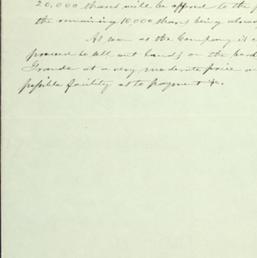 20,000 shares will be offered to the
the remaining 10000 shares being
As soon as the Company is
proceed to sell out lands on the
Grande at a very moderate price
possible facility as to payment &c.